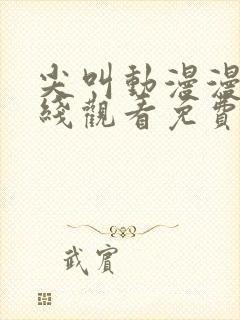 尖叫動漫漫
綫觀看免費
武賓